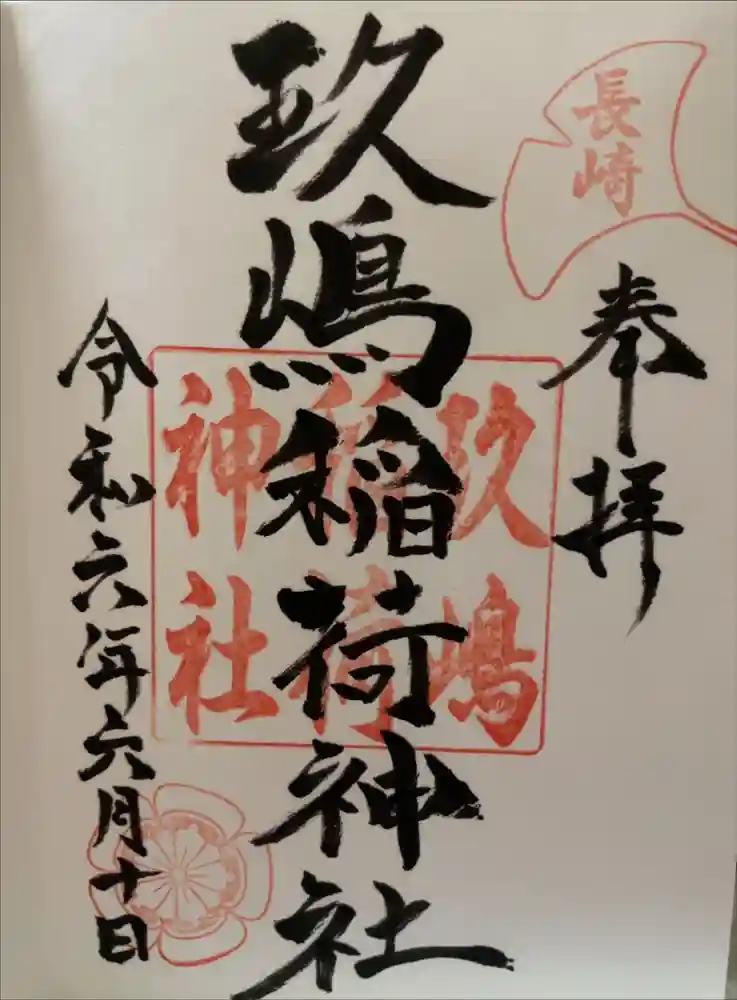 長崎
奉拝
玖嶋稲荷神社
玖嶋
稲荷
神社
令和六年六月十日